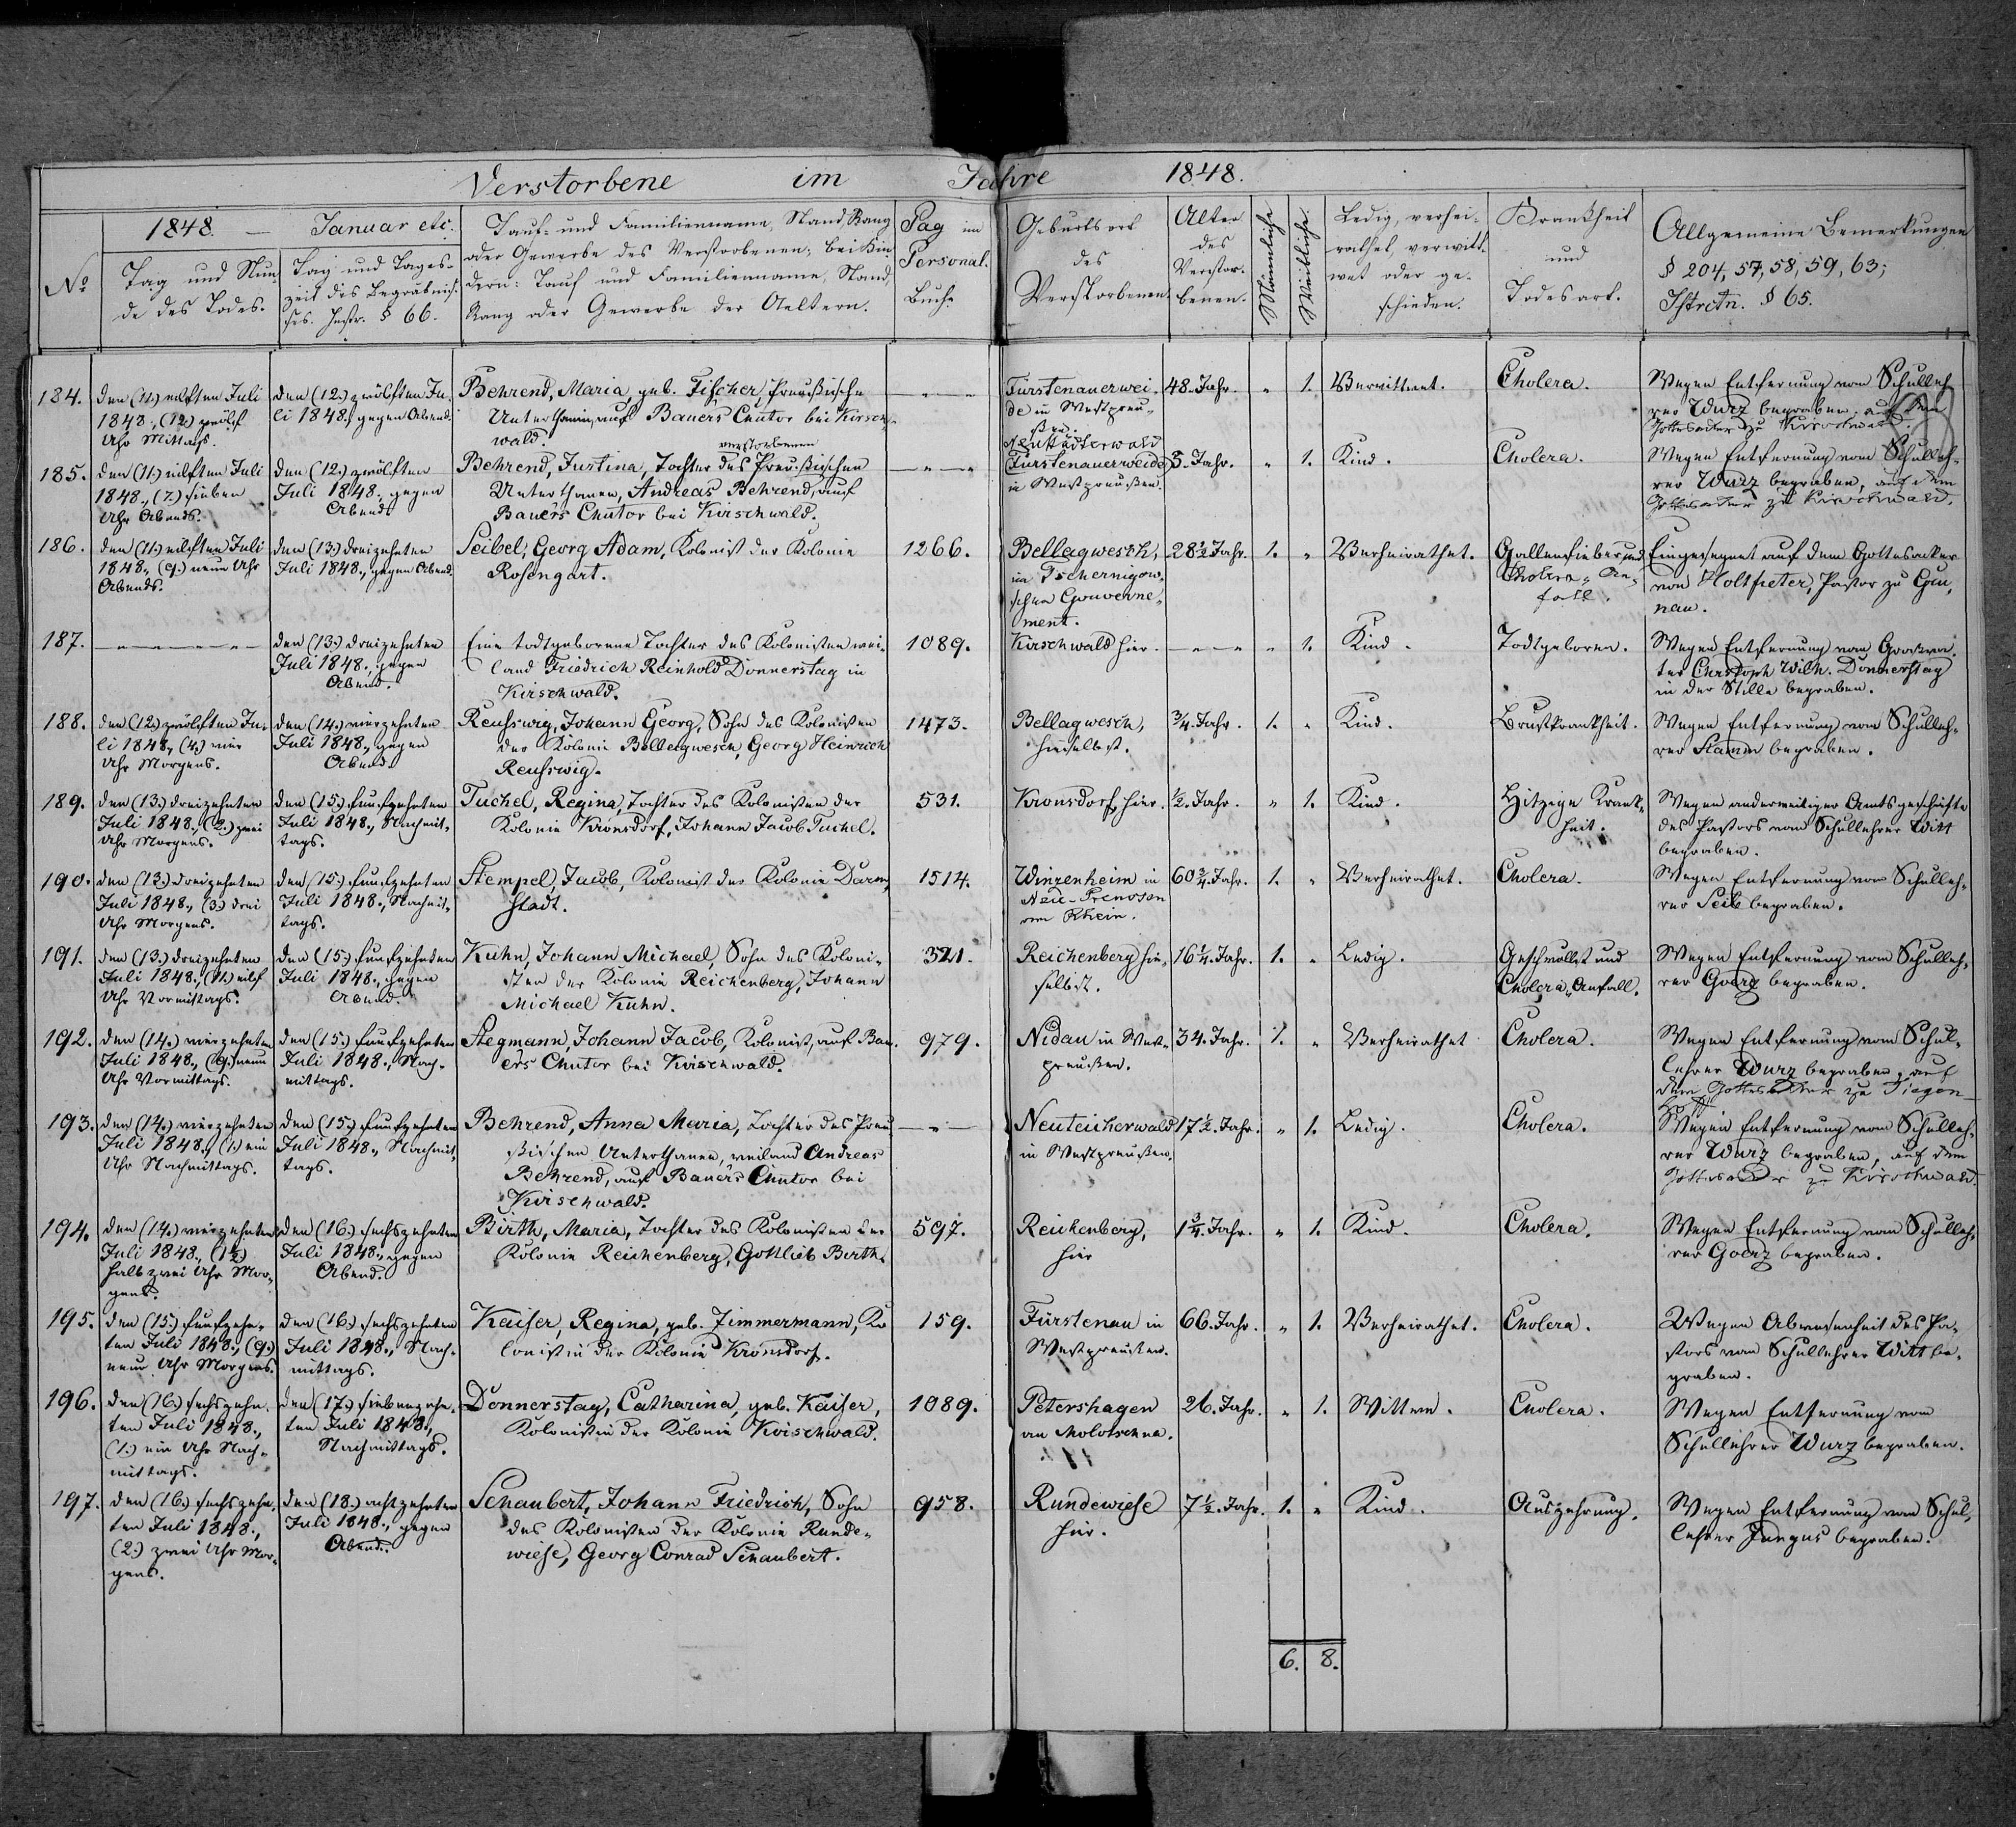 Verstorbene im Jahre 1848.
No
1848. — Januar etc.
Tag und Stun-
de des Todes.
Tag und Tages-
zeit des Begräbnis-
ses. Instr. § 66.
Tauf- und Familienname, Stand, Rang
oder Gewerbe des Verstorbenen; bei Kin-
dern: Tauf und Familienname, Stand,
Rang oder Gewerbe der Aeltern.
Pag im
Personal.
Buch.
Geburtsort
des
Verstorbenen.
Alter
des
Verstor-
benen.
Männliche
Weibliche
Ledig, verhei-
rathet, verwitt-
wet oder ge-
schieden.
Krankheit
und
Todesart.
Allgemeine Bemerkungen
§ 204, 57, 58, 59, 63;
Istrctn. § 65.
184.
den (11.) eilften Juli
1848., (12.) zwölf
Uhr Mittags.
den (12.) zwölften Ju-
li 1848., gegen Abend.
Behrend, Maria, geb. Fischer, Preußische
Unterthanin, auf Bauers Chutor bei Kirsch-
wald.
Fürstenauerwei-
de in Westpreu-
ßen.
48. Jahr.
1.
Verwittwet.
Cholera.
Wegen Entfernung vom Schulleh-
rer Wurz begraben, auf dem
Gottesacker zu Kirschwald.
185.
den (11.) eilften Juli
1848., (7.) sieben
Uhr Abends.
den (12.) zwölften
Juli 1848., gegen
Abend.
verstorbenen
Behrend, Justina, Tochter des Preußischen
Unterthanen, Andreas Behrend, auf
Bauers Chutor bei Kirschwald.
Neustädterwald
(Fürstenauerweide)
in Westpreußen.
3. Jahr.
1.
Kind.
Cholera.
Wegen Entfernung vom Schulleh-
rer Wurz begraben, auf dem
Gottesacker zu Kirschwald.
186.
den (11.) eilften Juli
1848., (9.) neun Uhr
Abends.
den (13.) dreizehnten
Juli 1848., gegen Abend.
Seibel, Georg Adam, Kolonist der Kolonie
Rosengart.
1266.
Bellagwesch,
im Tschernigow-
schen Gouverne-
ment.
28 1/2 Jahr.
1.
Verheirathet.
Gallenfieber und
Cholera-An-
fall.
Eingesegnet auf dem Gottesacker
von Holtfreter, Pastor zu Gru-
nau.
187.
den (13.) dreizehnten
Juli 1848., gegen
Abend.
Eine todtgeborene Tochter des Kolonisten wei-
land Friedrich Reinhold Donnerstag in
Kirschwald.
1089.
Kirschwald hier.
1.
Kind.
Todtgeboren.
Wegen Entfernung vom Großva-
ter Christoph Wilh. Donnerstag
in der Stille begraben.
188.
den (12.) zwölften Ju-
li 1848., (4.) vier
Uhr Morgens.
den (14.) vierzehnten
Juli 1848., gegen
Abend.
Reuswig, Johann Georg, Sohn des Kolonisten
der Kolonie Bellagwesch, Georg Heinrich
Reuswig.
1473.
Bellagwesch,
hieselbst.
3/4. Jahr.
1.
Kind.
Brustkrankheit.
Wegen Entfernung vom Schulleh-
rer Stamm begraben.
189.
den (13.) dreizehnten
Juli 1848., (2.) zwei
Uhr Morgens.
den (15.) funfzehnten
Juli 1848., Nachmit-
tags.
Tuchel, Regina, Tochter des Kolonisten der
Kolonie Kronsdorf, Johann Jacob Tuchel.
531.
Kronsdorf, hier.
1/2. Jahr.
1.
Kind.
Hitzige Krank-
heit.
Wegen anderweitiger Amtsgeschäfte
des Pastors vom Schullehrer Witt
begraben.
190.
den (13.) dreizehnten
Juli 1848., (3.) drei
Uhr Morgens.
den (15.) funfzehnten
Juli 1848., Nachmit-
tags.
Stempel, Jacob, Kolonist der Kolonie Darm-
stadt.
1514.
Winzenheim in
Neu-Preussen
am Rhein.
60 3/4. Jahr.
1.
Verheirathet.
Cholera.
Wegen Entfernung vom Schulleh-
rer Seib begraben.
191.
den (13.) dreizehnten
Juli 1848., (11.) eilf
Uhr Vormittags.
den (15.) funfzehnten
Juli 1848., gegen
Abend.
Kuhn, Johann Michael, Sohn des Koloni-
sten der Kolonie Reichenberg, Johann
Michael Kuhn.
321.
Reichenberg hie-
selbst.
16 1/4. Jahr.
1.
Ledig.
Geschwulst und
Cholera-Anfall.
Wegen Entfernung vom Schulleh-
rer Goerz begraben.
192.
den (14.) vierzehnten
Juli 1848., (9.) neun
Uhr Vormittags.
den (15.) funfzehnten
Juli 1848., Nach-
mittags.
Stegmann, Johann Jacob, Kolonist, auf Bau-
ers Chutor bei Kirschwald.
979.
Nidau in West-
preußen.
34. Jahr.
1.
Verheirathet
Cholera.
Wegen Entfernung vom Schul-
lehrer Wurz begraben, auf
dem Gottesacker zu Tiegen-
193.
den (14.) vierzehnten
Juli 1848., (1.) ein
Uhr Nachmittags.
den (15.) funfzehnten
Juli 1848., Nachmit-
tags.
Behrend, Anna Maria, Tochter des Preu-
ßischen Unterthanen, weiland Andreas
Behrend, auf Bauers Chutor bei
Kirschwald.
Neuteicherwald
in Westpreußen.
17 1/2. Jahr.
1.
Ledig.
Cholera.
Wegen Entfernung vom Schulleh-
rer Wurz begraben, auf dem
Gottesacker zu Kirschwald.
194.
den (14.) vierzehnten
Juli 1848., (1 1/2)
halb zwei Uhr Mor-
gens.
den (16.) sechszehnten
Juli 1848., gegen
Abend.
Birth, Maria, Tochter des Kolonisten der
Kolonie Reichenberg, Gottlieb Birth.
597.
Reichenberg,
hier
1 3/4. Jahr.
1.
Kind.
Cholera.
Wegen Entfernung vom Schulleh-
rer Goerz begraben.
195.
den (15.) funfzehn-
ten Juli 1848., (9.)
neun Uhr Morgens.
den (16.) sechszehnten
Juli 1848., Nach-
mittags.
Kaiser, Regina, geb. Zimmermann, Ko-
lonistin der Kolonie Kronsdorf.
159.
Fürstenau in
Westpreußen.
66. Jahr.
1.
Verheirathet.
Cholera.
Wegen Abwesenheit des Pa-
stors vom Schullehrer Witt be-
graben.
196.
den (16.) sechszehn-
ten Juli 1848.,
(1.) ein Uhr Nach-
mittags.
den (17.) siebenzehn-
ten Juli 1848.,
Nachmittags.
Donnerstag, Catharina, geb. Kaiser,
Kolonistin der Kolonie Kirschwald.
1089.
Petershagen
an Molotschna.
26. Jahr.
1.
Wittwe.
Cholera.
Wegen Entfernung vom
Schullehrer Wurz begraben.
197.
den (16.) sechszehn-
ten Juli 1848.,
(2.) zwei Uhr Mor-
gens.
den (18.) achtzehnten
Juli 1848., gegen
Abend.
Schaubert, Johann Friedrich, Sohn
des Kolonisten der Kolonie Runde-
wiese, Georg Conrad Schaubert.
958.
Rundewiese
hier.
7 1/2. Jahr.
1.
Kind.
Auszehrung.
Wegen Entfernung vom Schul-
lehrer Jungus begraben.
6. 8.